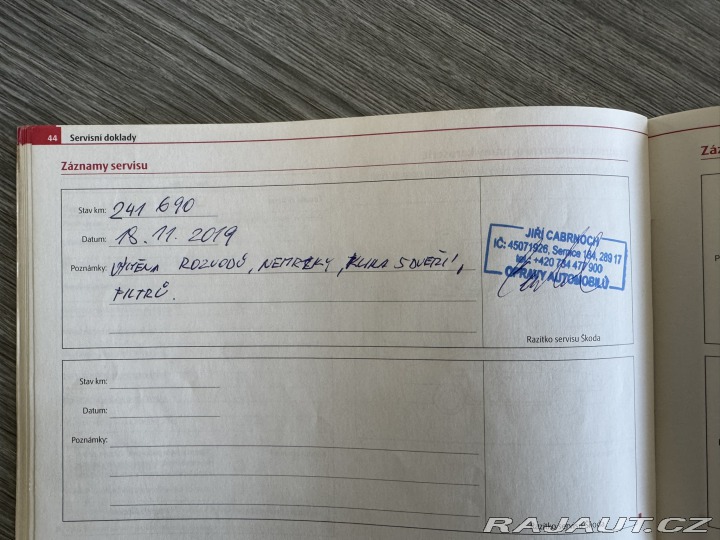 44 Servisní doklady
Záznamy servisu
Stav km: 241 690
Datum: 18.11.2019
Poznámky: VÝMĚNA ROZVODŮ, NEMRZKY,
FILTRŮ.
JIŘÍ CABRNOCH
IČ: 45071926, Semice 184, 289 17
tel.: +420 784 477 900
OPRAVY AUTOMOBILŮ
Razítko servisu Škoda
Stav km:
Datum:
Poznámky:
RAJAUT.CZ